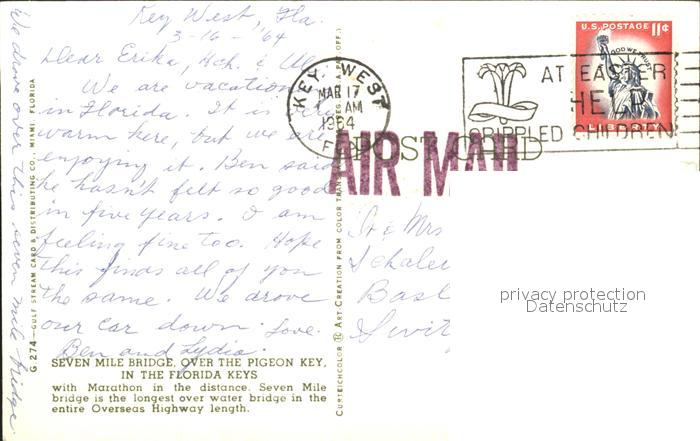 Key West, Fla.
3-16-'64
Dear Erika, Hch. & Ul
We are vacation
in Florida. It is very
warm here, but we are
enjoying it. Ben said
he hasn't felt so good
in five years. I am
feeling fine too. Hope
this finds all of you
the same. We drove
our car down. Love.
Ben and Lydia.
We drove over this seven mile bridge.
G. 274—GULF STREAM CARD & DISTRIBUTING CO., MIAMI, FLORIDA
SEVEN MILE BRIDGE, OVER THE PIGEON KEY,
IN THE FLORIDA KEYS
with Marathon in the distance. Seven Mile
bridge is the longest over water bridge in the
entire Overseas Highway length.
CURTEICHCOLOR ® ART-CREATION FROM COLOR TRANS
PAT. OFF.)
POST CARD
KEY WEST
MAR 17
AM
1964
FLA
AIR MAIL
AT EASTER
HELP
CRIPPLED CHILDREN
U.S. POSTAGE 11¢
IN GOD WE TRUST
LIBERTY
& Mrs
Schale
Basl
Swit
privacy protection
Datenschutz